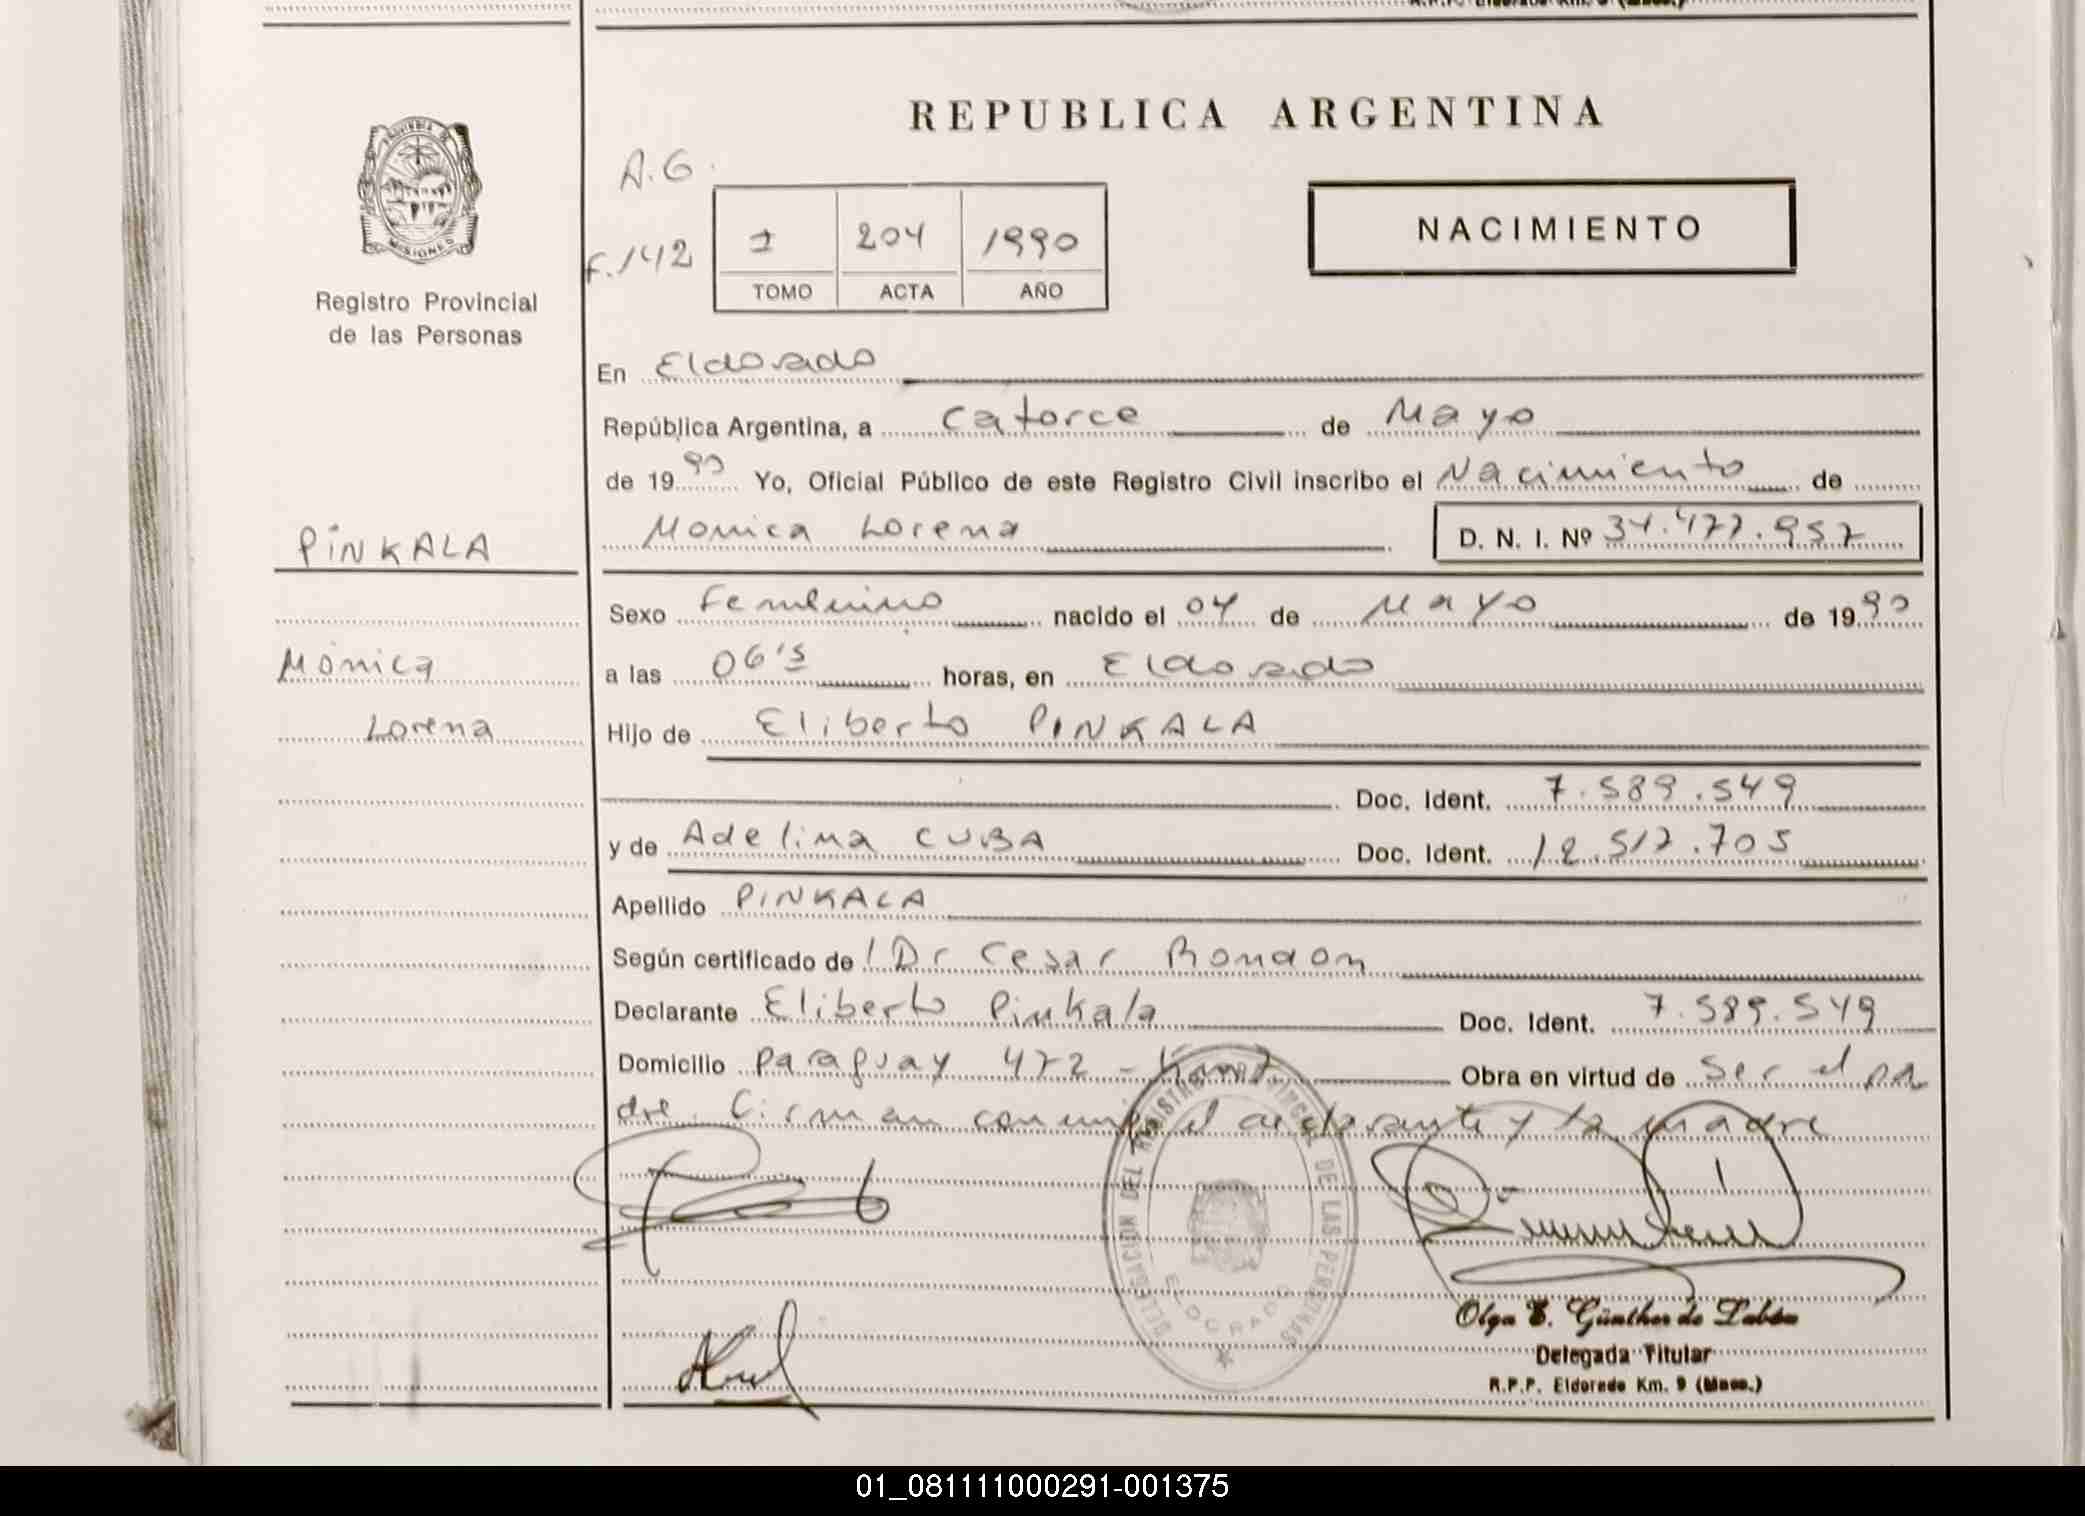 REPUBLICA ARGENTINA
A.G.
F.142
1 204 1990
TOMO ACTA AÑO
NACIMIENTO
PROVINCIA DE MISIONES
Registro Provincial
de las Personas
En Eldorado
República Argentina, a catorce de Mayo
de 1990 Yo, Oficial Público de este Registro Civil inscribo el Nacimiento de
Monica Lorena D. N. I. Nº 34.477.957
PINKALA
Sexo Femenino nacido el 04 de Mayo de 1990
Mónica
a las 06's horas, en Eldorado
Lorena
Hijo de Eliberto PINKALA
Doc. Ident. 7.589.549
y de Adelina CUBA Doc. Ident. 12.517.705
Apellido PINKALA
Según certificado de l Dr Cesar Rondon
Declarante Eliberto Pinkala Doc. Ident. 7.589.549
Domicilio Paraguay 472 - Km 9 Obra en virtud de ser el pa
dre. Firman conmigo el declarante y la madre
DELEGACION DEL REGISTRO PROVINCIAL DE LAS PERSONAS
ELDORADO
Olga E. Günther de
Delegada Titular
R.P.P. Eldorado Km. 9 (Mnes.)
01_081111000291-001375